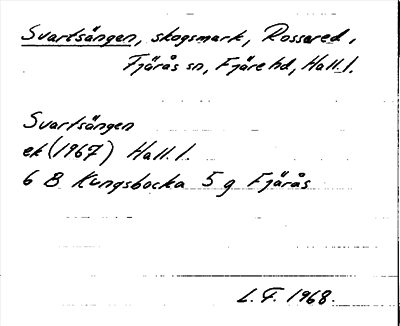 Svartsängen, skogsmark, Rossared,
Fjärås sn, Fjäre hd, Hall l.
Svartsängen
ek (1967) Hall. l.
6 B Kungsbacka 5 g Fjärås
L. F. 1968.